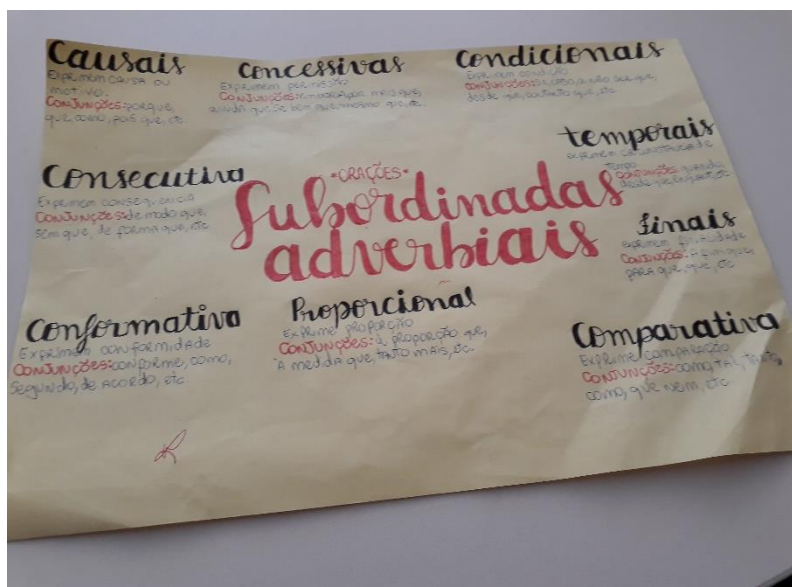 Causais
Exprimem causa ou
motivo.
CONJUNÇÕES: porque,
que, como, pois que, etc.
Concessivas
Exprimem permissão
CONJUNÇÕES: embora, por mais que,
ainda que, se bem que, mesmo que, etc.
Condicionais
Exprimem condição
CONJUNÇÕES: se, caso, a não ser que,
desde que, contanto que, etc.
temporais
exprimem circunstância de
tempo
CONJUNÇÕES: quando,
desde que, enquanto, etc
Consecutiva
Exprimem consequência
CONJUNÇÕES: de modo que,
sem que, de forma que, etc.
*ORAÇÕES*
Subordinadas
adverbiais
finais
exprimem finalidade
CONJUNÇÕES: A fim que,
PARA que, que, etc
Conformativa
Exprimem conformidade
CONJUNÇÕES: conforme, como,
segundo, de acordo, etc.
Proporcional
Exprime proporção
CONJUNÇÕES: à proporção que,
A medida que, tanto mais, etc.
Comparativa
Exprime comparação
CONJUNÇÕES: como, tal, tanto,
como, que nem, etc